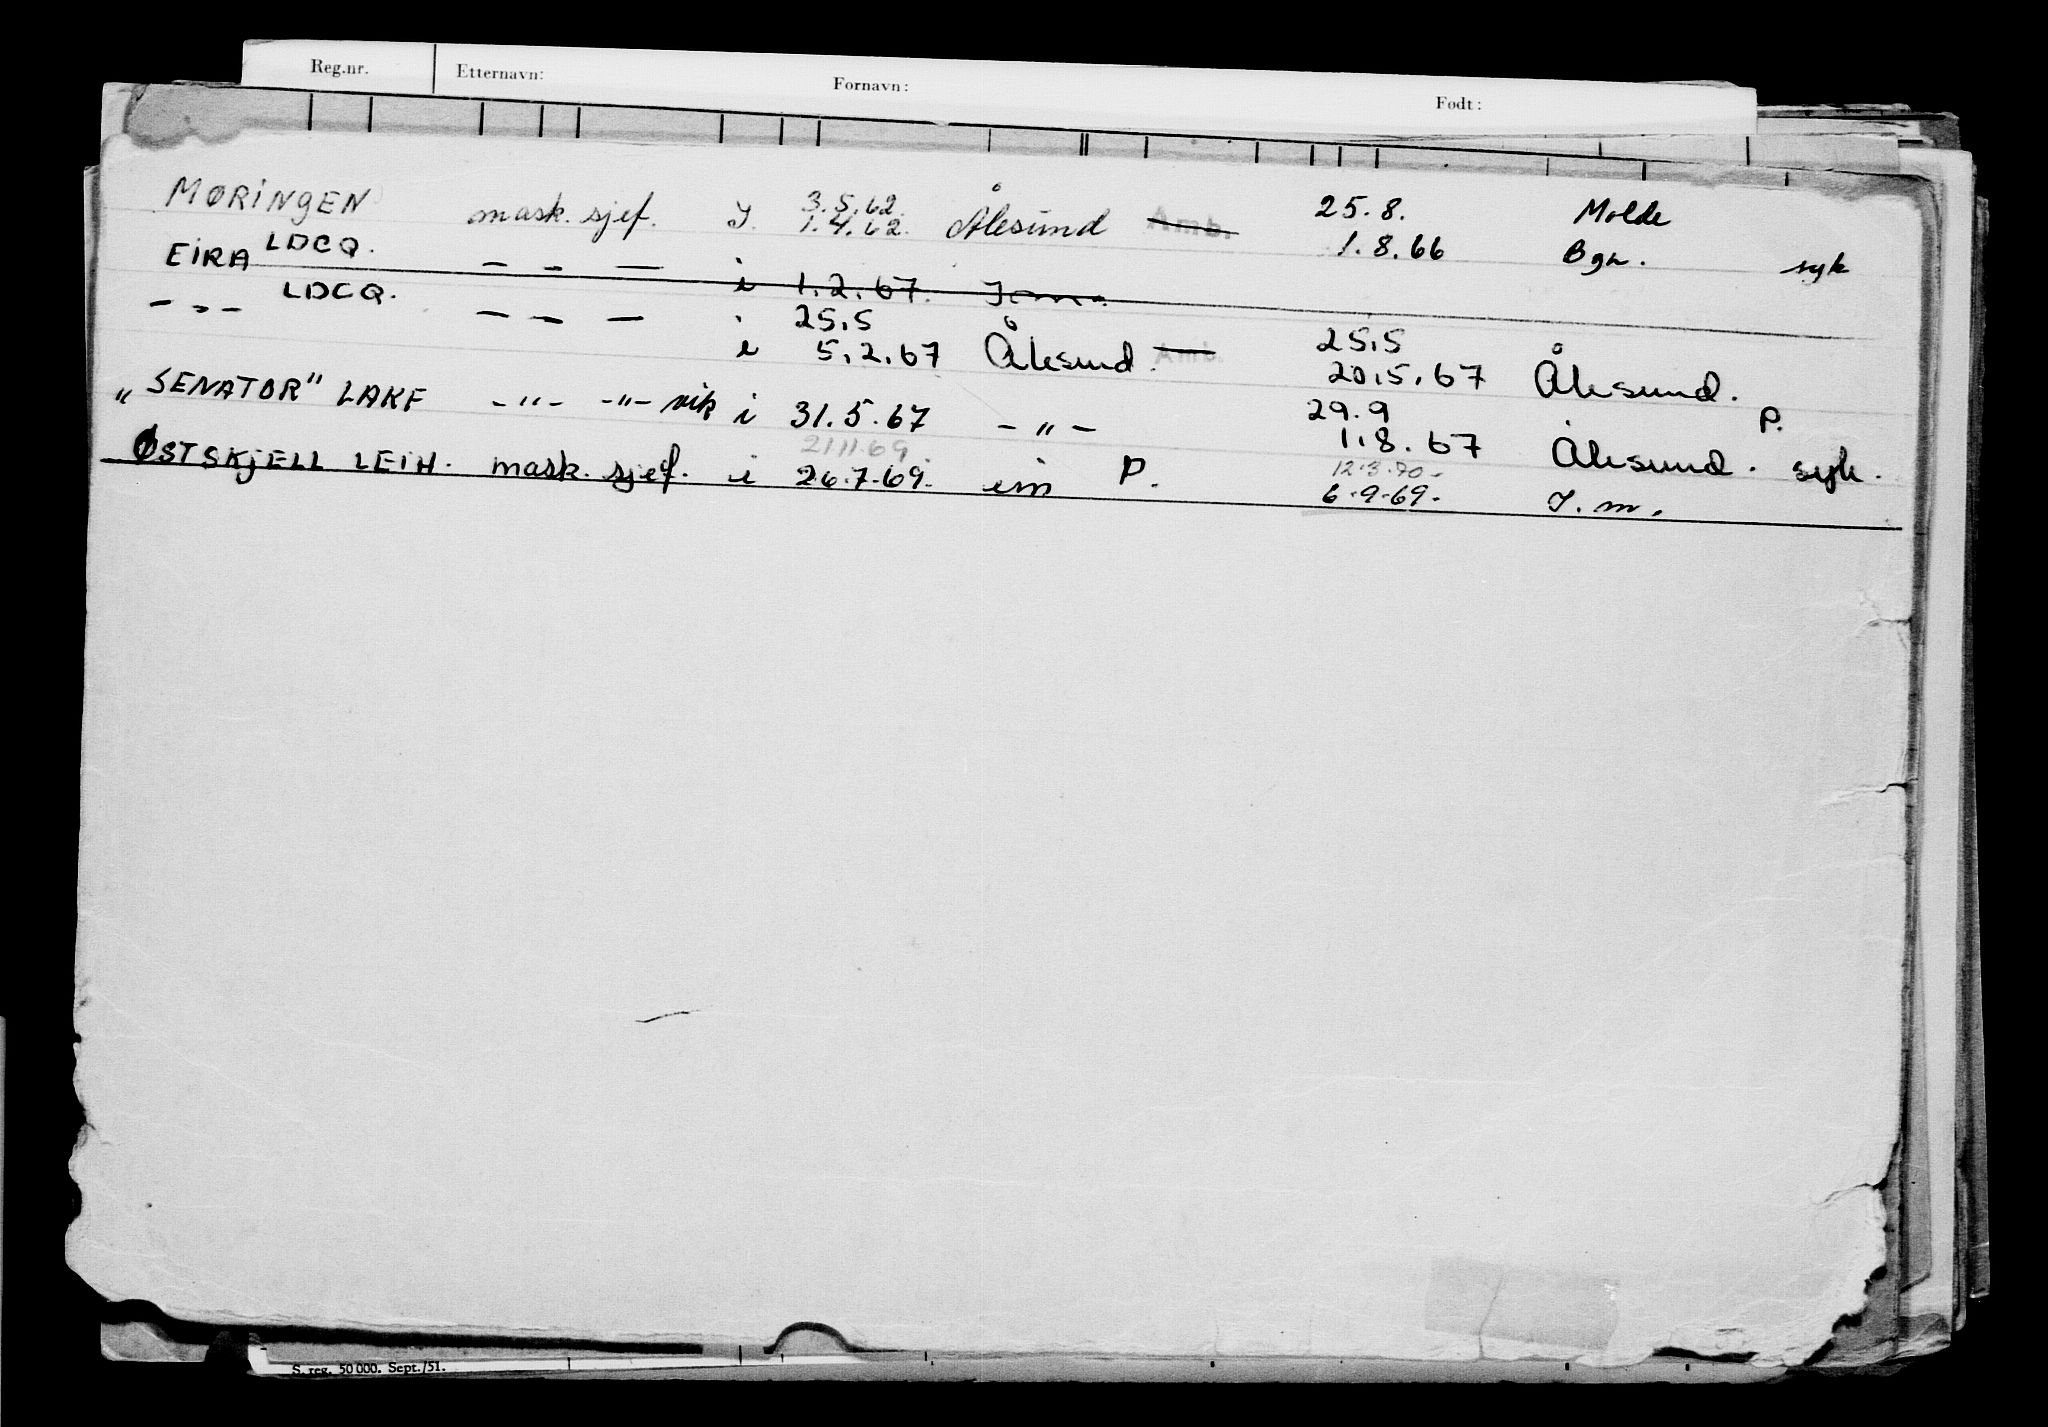 Reg.nr. Etternavn: Fornavn: Født:
3.5.62. 25.8.
MØRINGEN mask. sjef. I. 1.4.62. Ålesund Amb. 1.8.66 Molde Bgn. syk
EIRA LDCQ. — — — i 1.2.67.
25.5 25.5
— " — LDCQ. — — — i 5.2.67 Ålesund. Amb. 20.5.67 Ålesund.
29.9 P.
"SENATOR" LAKF — " — — " — vik i 31.5.67 — " — 1.8.67 Ålesund. syk.
21.11.69. 12.3.70.
ØSTSKJELL LEIH. mask. sjef. i 26.7.69. em P. 6.9.69. I.m.
S. reg. 50 000. Sept./51.